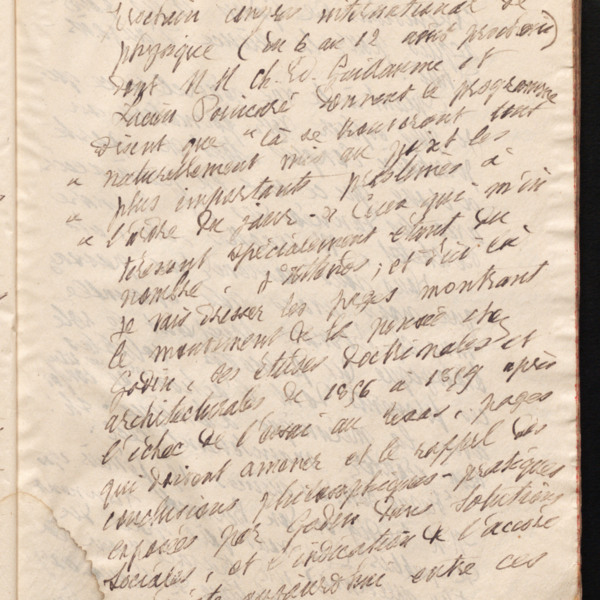 prochain congrès international de
physique (du 6 au 12 août prochain)
dont M M Ch. Ed. Guillaume et
Lucien Poincaré donnent le programme
disent que "là se trouveront tout
« naturellement mis au point les
« plus importants problèmes à
« l'ordre du jour. » Ceux qui m'in
téressent spécialement étant du
nombre, j'attends ; et d'ici là
je vais dresser les pages montrant
le mouvement de la pensée chez
Godin, ses études doctrinales et
architecturales de 1856 à 1859 après
l'échec de l'essai au Texas, pages
qui doivent amener et le rappel des
conclusions philosophiques-pratiques
exposées par Godin dans Solutions
Sociales, et l'indication de l'accord
aujourd'hui entre ces